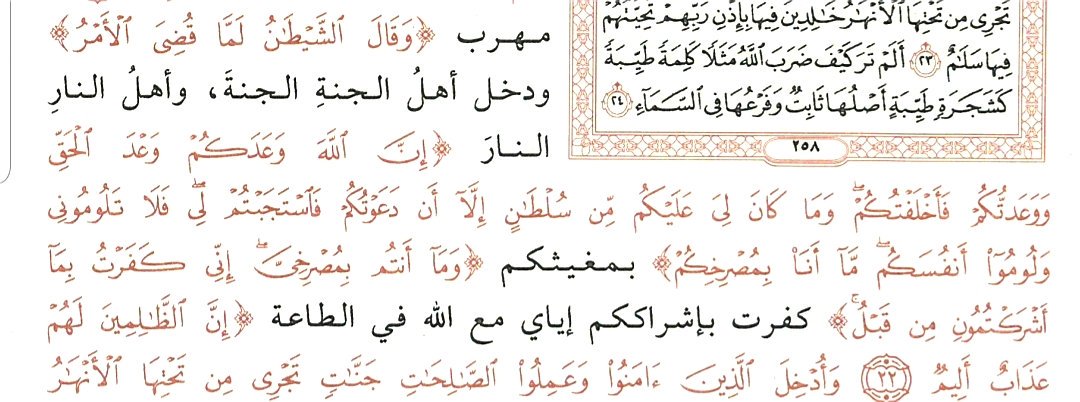 تَجْرِى مِن تَحْتِهَا ٱلْأَنْهَٰرُ خَٰلِدِينَ فِيهَا بِإِذْنِ رَبِّهِمْ تَحِيَّتُهُمْ
فِيهَا سَلَٰمٌ ٢٣ أَلَمْ تَرَ كَيْفَ ضَرَبَ ٱللَّهُ مَثَلًا كَلِمَةً طَيِّبَةً
كَشَجَرَةٍ طَيِّبَةٍ أَصْلُهَا ثَابِتٌ وَفَرْعُهَا فِى ٱلسَّمَآءِ ٢٤
٢٥٨
مهرب ﴿وَقَالَ ٱلشَّيْطَٰنُ لَمَّا قُضِىَ ٱلْأَمْرُ﴾
ودخل أهلُ الجنةِ الجنةَ، وأهلُ النارِ
النارَ ﴿إِنَّ ٱللَّهَ وَعَدَكُمْ وَعْدَ ٱلْحَقِّ
وَوَعَدتُّكُمْ فَأَخْلَفْتُكُمْ ۖ وَمَا كَانَ لِىَ عَلَيْكُم مِّن سُلْطَٰنٍ إِلَّآ أَن دَعَوْتُكُمْ فَٱسْتَجَبْتُمْ لِى ۖ فَلَا تَلُومُونِى
وَلُومُوٓا۟ أَنفُسَكُم ۖ مَّآ أَنَا۠ بِمُصْرِخِكُمْ﴾ بمغيثكم ﴿وَمَآ أَنتُم بِمُصْرِخِىَّ ۖ إِنِّى كَفَرْتُ بِمَآ
أَشْرَكْتُمُونِ مِن قَبْلُ ۗ﴾ كفرت بإشراككم إياي مع الله في الطاعة ﴿إِنَّ ٱلظَّٰلِمِينَ لَهُمْ
عَذَابٌ أَلِيمٌ ٢٢ وَأُدْخِلَ ٱلَّذِينَ ءَامَنُوا۟ وَعَمِلُوا۟ ٱلصَّٰلِحَٰتِ جَنَّٰتٍ تَجْرِى مِن تَحْتِهَا ٱلْأَنْهَٰرُ